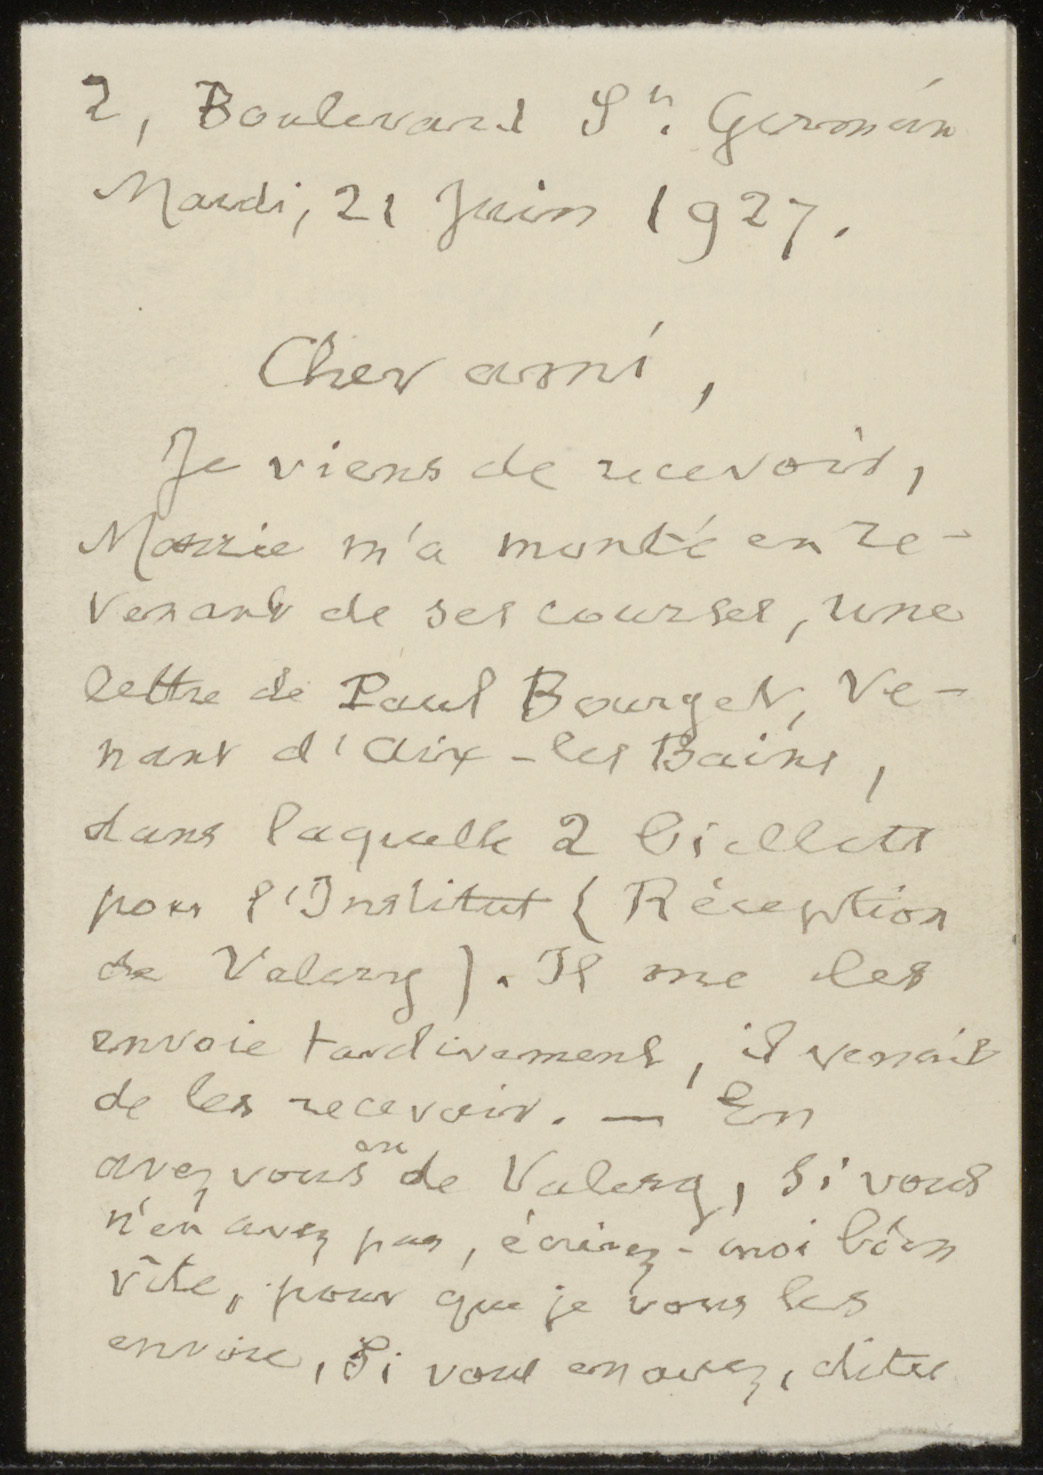 2, Boulevard St. Germain
Mardi, 21 Juin 1927.
Cher ami,
Je viens de recevoir,
Marie m'a monté en re-
venant de ses courses, une
lettre de Paul Bourget, ve-
nant d'Aix-les Bains,
dans laquelle 2 billets
pour l'Institut (Réception
de Valery). Il me les
envoie tardivement, il venait
de les recevoir. — En
avez vous eu de Valery, si vous
n'en avez pas, écrivez-moi bien
vite, pour que je vous les
envoie, Si vous en avez, dites